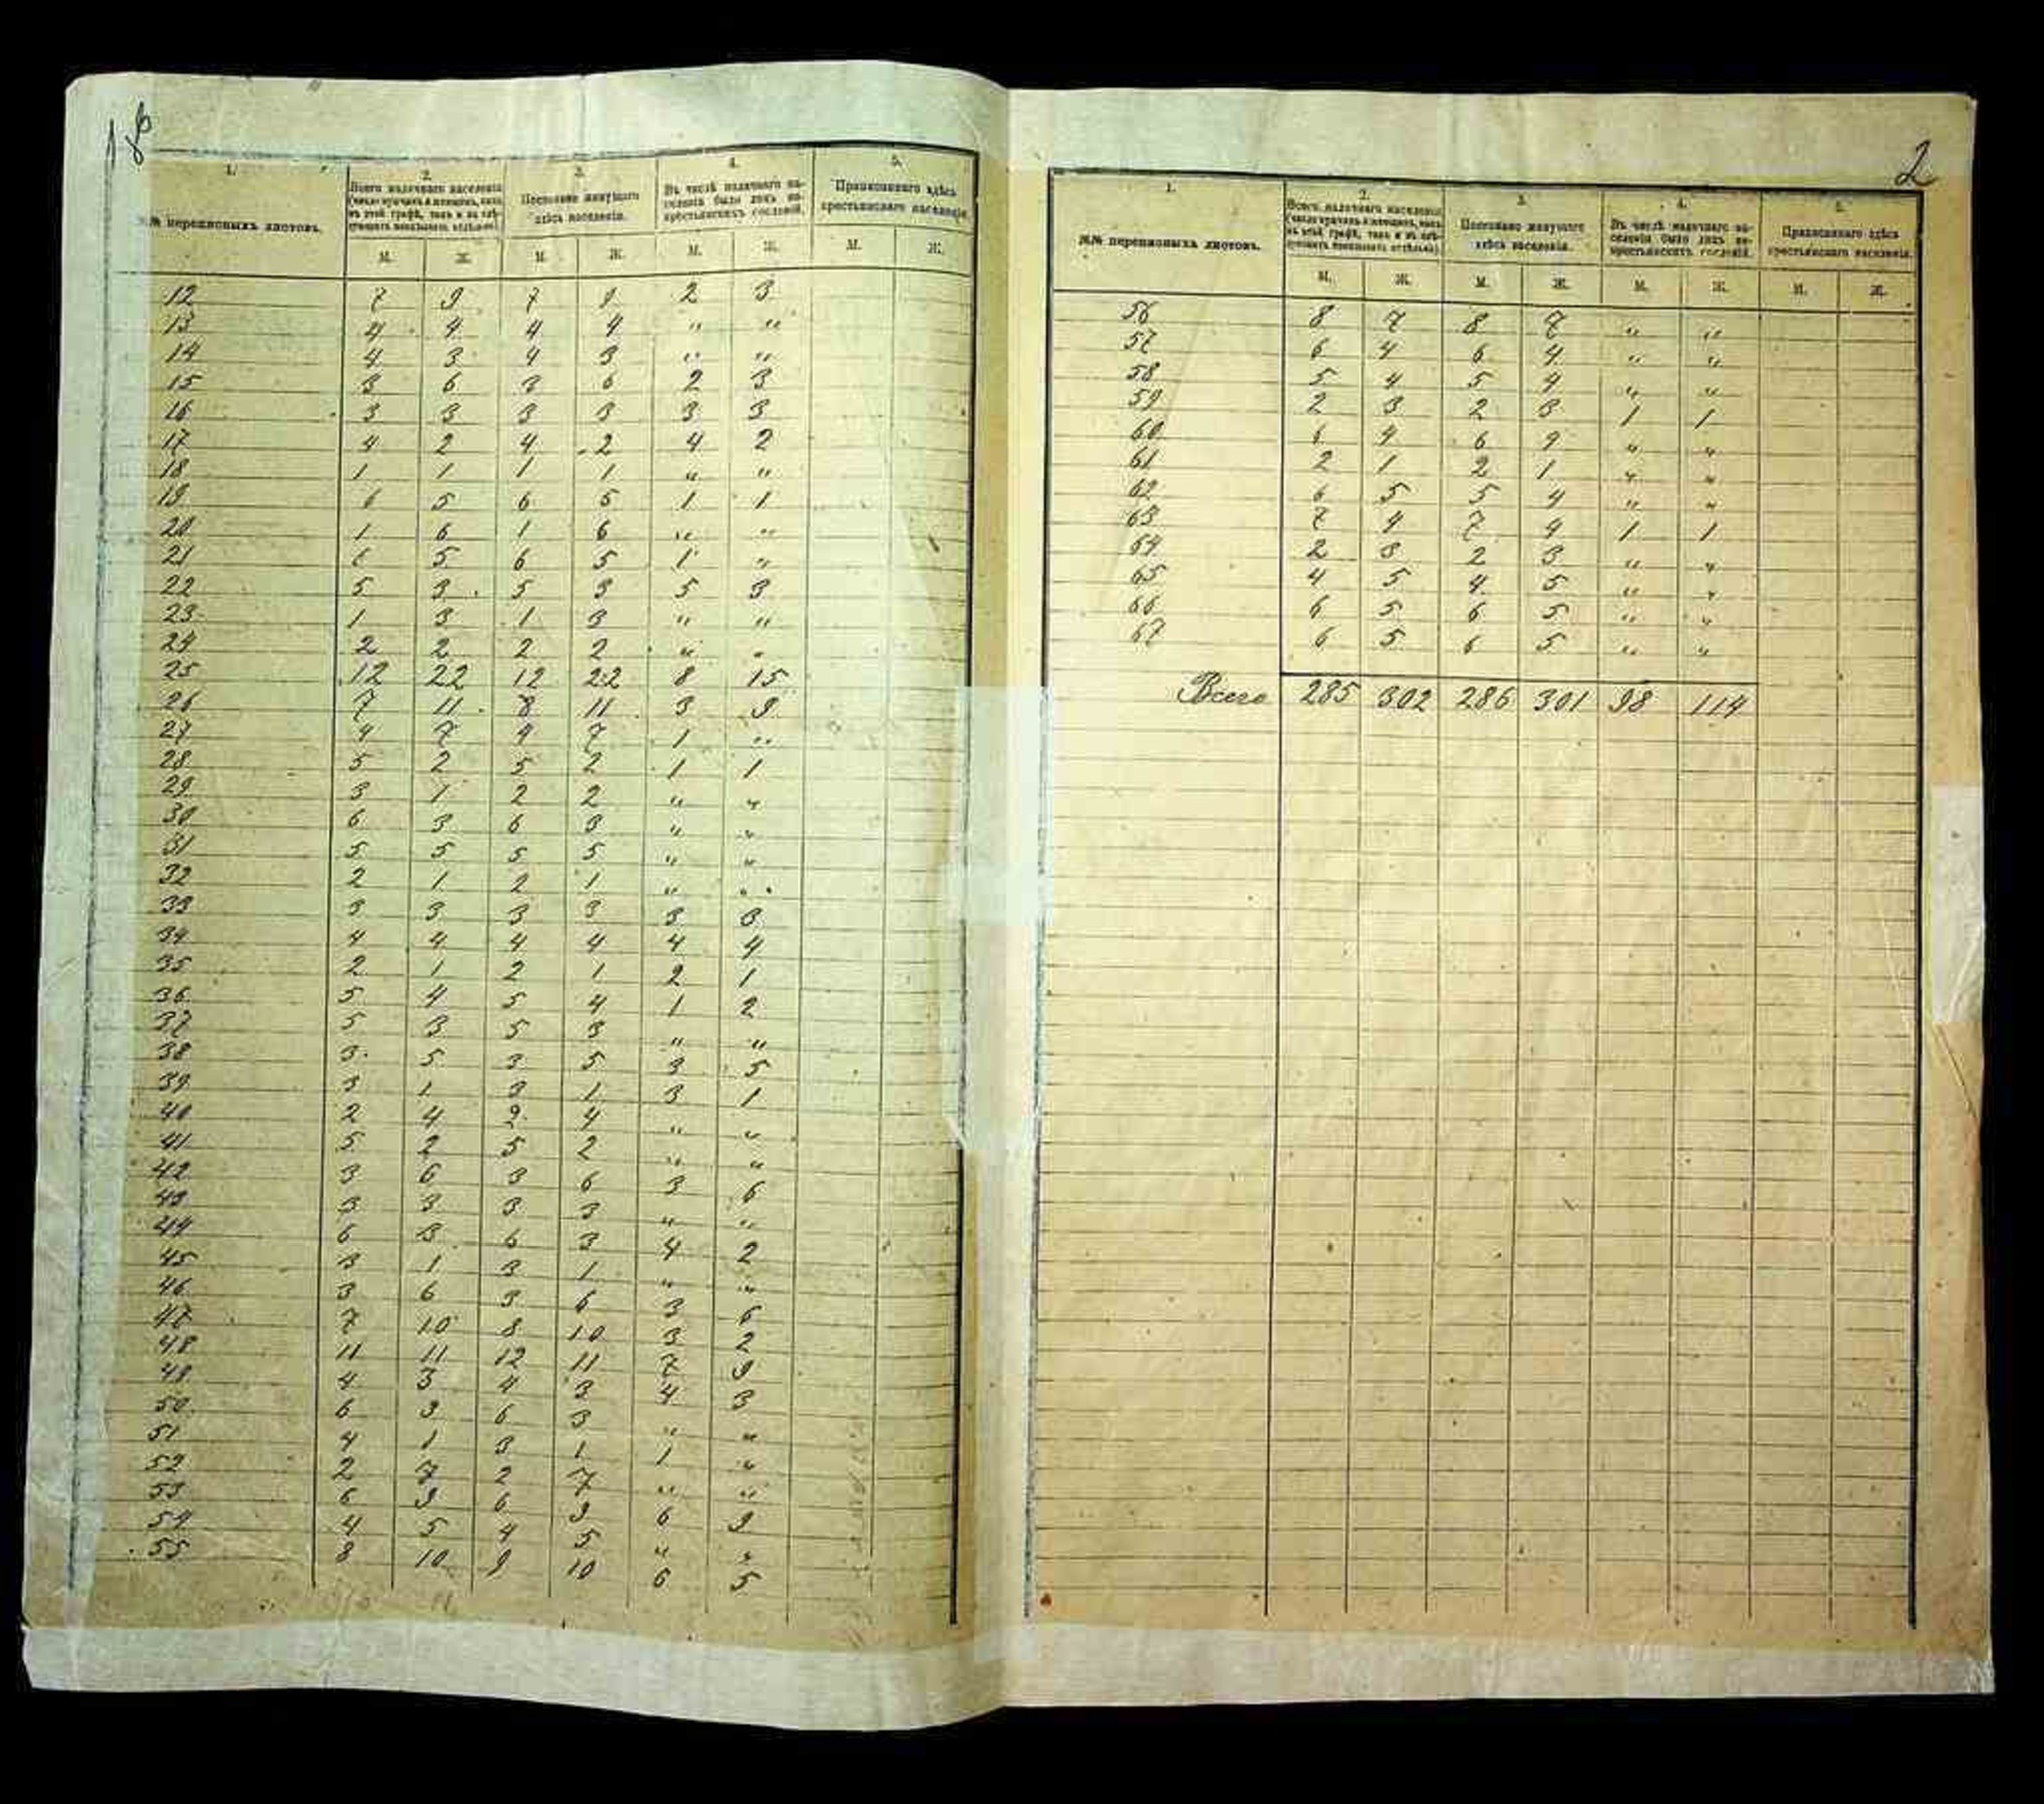 18
1. 2. 3. 4. 5.
№№ переписныхъ листовъ. Всего наличнаго населенія (число мужчинъ и женщинъ, какъ въ этой графѣ, такъ и въ слѣдующихъ показывать отдѣльно). Постоянно живущаго здѣсь населенія. Въ числѣ наличнаго населенія было лицъ некрестьянскихъ сословій. Приписаннаго здѣсь крестьянскаго населенія.
М. Ж. М. Ж. М. Ж. М. Ж.
12 7 9 7 9 2 3
13 4 4 4 4 " "
14 4 3 4 3 " "
15 3 6 3 6 2 3
16 3 3 3 3 3 3
17 4 2 4 2 4 2
18 1 1 1 1 " "
19 6 5 6 5 1 1
20 1 6 1 6 " "
21 6 5 6 5 1 "
22 5 3 5 3 5 3
23 1 3 1 3 " "
24 2 2 2 2 " "
25 12 22 12 22 8 15
26 7 11 8 11 3 9
27 4 7 4 7 1 "
28 5 2 5 2 1 1
29 3 1 2 2 " "
30 6 3 6 3 " "
31 5 5 5 5 " "
32 2 1 2 1 " "
33 3 3 3 3 3 3
34 4 4 4 4 4 4
35 2 1 2 1 2 1
36 5 4 5 4 1 2
37 5 3 5 3 " "
38 3 5 3 5 3 5
39 3 1 3 1 3 1
40 2 4 2 4 " "
41 5 2 5 2 " "
42 3 6 3 6 3 6
43 3 3 3 3 " "
44 6 3 6 3 4 2
45 3 1 3 1 " "
46 3 6 3 6 3 6
47 7 10 8 10 3 2
48 11 11 12 11 7 9
49 4 3 4 3 4 3
50 6 3 6 3 " "
51 4 1 3 1 1 "
52 2 7 2 7 " "
53 6 9 6 9 6 9
54 4 5 4 5 " "
55 8 10 9 10 6 5
2
1. 2. 3. 4. 5.
№№ переписныхъ листовъ. Всего наличнаго населенія (число мужчинъ и женщинъ, какъ въ этой графѣ, такъ и въ слѣдующихъ показывать отдѣльно). Постоянно живущаго здѣсь населенія. Въ числѣ наличнаго населенія было лицъ некрестьянскихъ сословій. Приписаннаго здѣсь крестьянскаго населенія.
М. Ж. М. Ж. М. Ж. М. Ж.
56 8 7 8 7 " "
57 6 4 6 4 " "
58 5 4 5 4 " "
59 2 3 2 3 1 1
60 6 4 6 4 " "
61 2 1 2 1 " "
62 6 5 5 4 " "
63 7 4 7 4 1 1
64 2 3 2 3 " "
65 4 5 4 5 " "
66 6 5 6 5 " "
67 6 5 6 5 " "
Всего 285 302 286 301 98 114